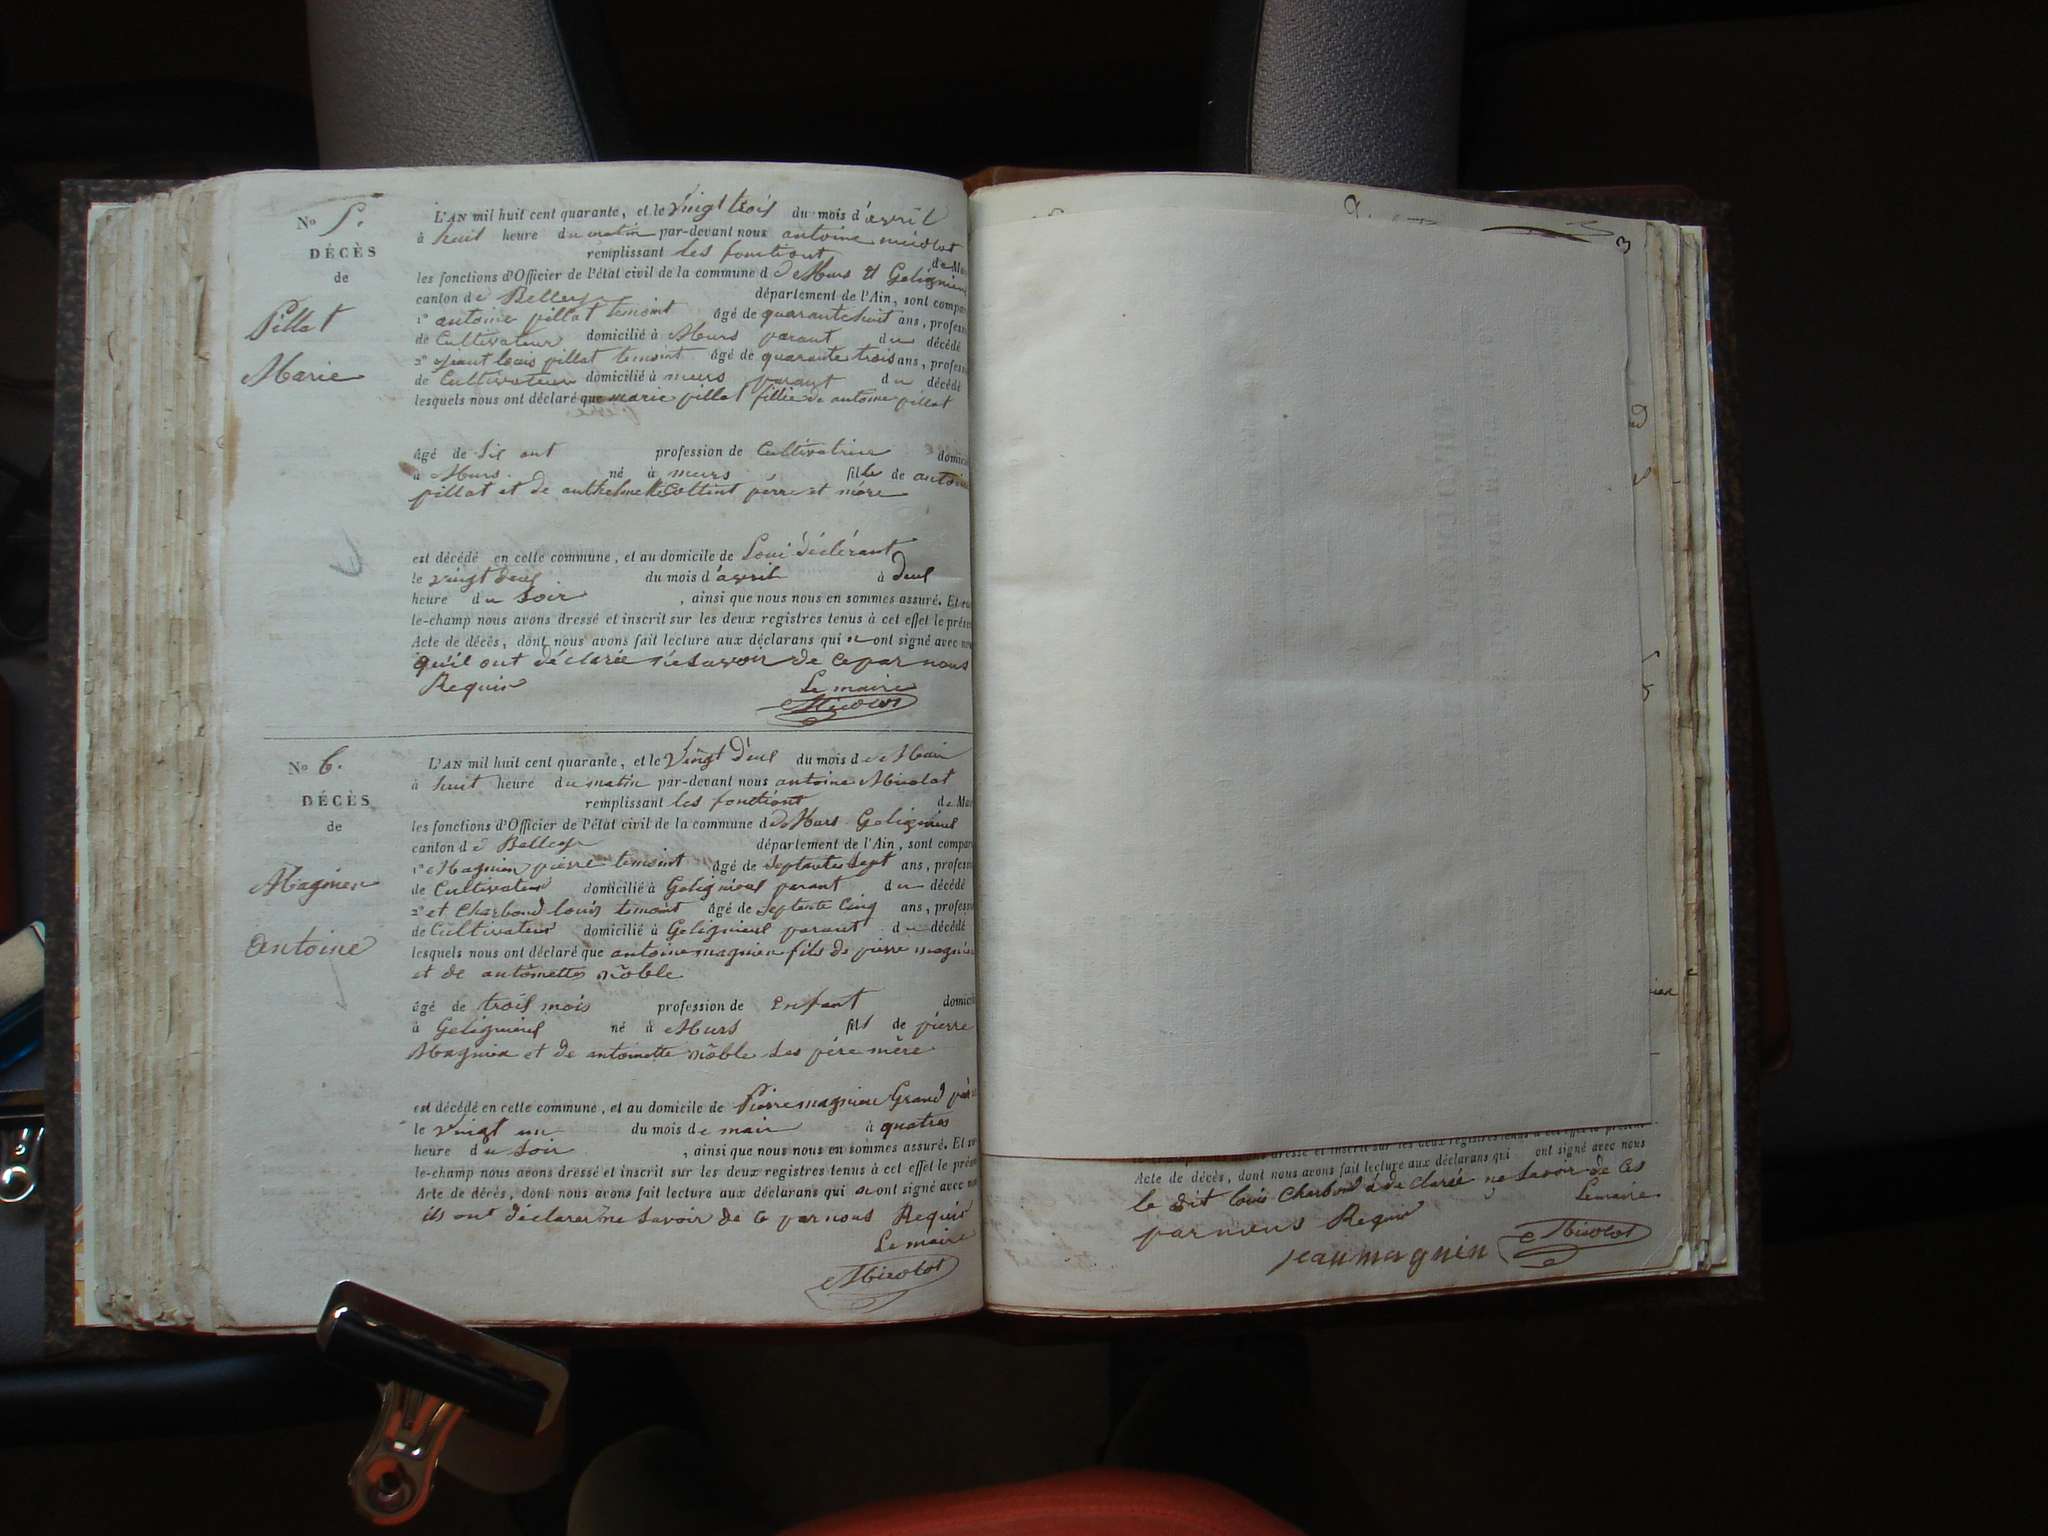 No 5.
DÉCÈS
de
Pillat
Marie
L'AN mil huit cent quarante, et le vingt trois du mois d'avril
à huit heure du matin par-devant nous antoine micolot
remplissant les fonctiont de Ma
les fonctions d'Officier de l'état civil de la commune d de Murs et Gelignieu
canton de Belley département de l'Ain, sont compa
1º antoine pillat temoint âgé de quarantehuit ans, profess
de Cultivateur domicilié à Murs parant du décédé
2º jeant louis pillat temoint âgé de quarante trois ans, profess
de Cultivateur domicilié à murs parant du décédé
lesquels nous ont déclaré que marie pillat fillie de antoine pillat
âgé de sis ant profession de Cultivatrice domici
à Murs. né à murs fille de antoine
pillat et de anthelmette Cottint pérre et mére
est décédé en cette commune, et au domicile de Loui déclérant
le vingt deus du mois d'avril à deus
heure du Soir, ainsi que nous nous en sommes assuré. Et su
le-champ nous avons dressé et inscrit sur les deux registres tenus à cet effet le prése
Acte de décès, dont nous avons fait lecture aux déclarans qui ne ont signé avec nou
qu'il ont déclarée ne savoir de ce par nous
Requis Le maire
Micolot
No 6.
DÉCÈS
de
Magnien
antoine
L'AN mil huit cent quarante, et le vingt deus du mois de Mai
à huit heure du matin par-devant nous antoine Micolot
remplissant les fonctiont de Ma
les fonctions d'Officier de l'état civil de la commune d de Murs Gelignieus
canton de Belley département de l'Ain, sont compar
1º Magnien pierre temoint âgé de Septante Sept ans, profess
de Cultivateur domicilié à Gelignieus parant du décédé
2º et Charbond louis temoint âgé de Septente Cinq ans, profess
de Cultivateur domicilié à Gelignieus parant du décédé
lesquels nous ont déclaré que antoine magnien fils de pierre magnien
et de antoinette noble
âgé de trois mois profession de Enfant domici
à Gelignieus né à Murs fils de pierre
Magnien et de antoinette noble ses père mère
est décédé en cette commune, et au domicile de Pierre magnien Grand père
le vingt un du mois de mai à quatres
heure du Soir, ainsi que nous nous en sommes assuré. Et su
le-champ nous avons dressé et inscrit sur les deux registres tenus à cet effet le prése
Acte de décès, dont nous avons fait lecture aux déclarans qui ne ont signé avec nou
ils ont déclarer ne savoir de ce par nous Requis
Le maire
Micolot
3
dressé et inscrit sur les deux registres tenus à cet effet le présent
Acte de décès, dont nous avons fait lecture aux déclarans qui ont signé avec nous
le dit louis Charbond à declarée ne savoir de ces
par nous Requis Lemaire
jean magnin Micolot